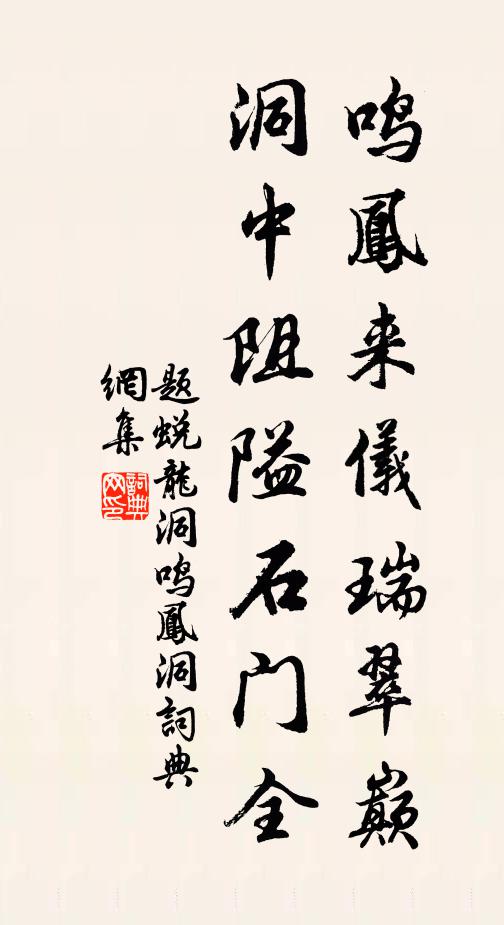 鸣鳳来儀瑞翠巔
洞中阻隘石门全
题蜕龍洞鸣鳳洞詞典
網集
詞典
网印